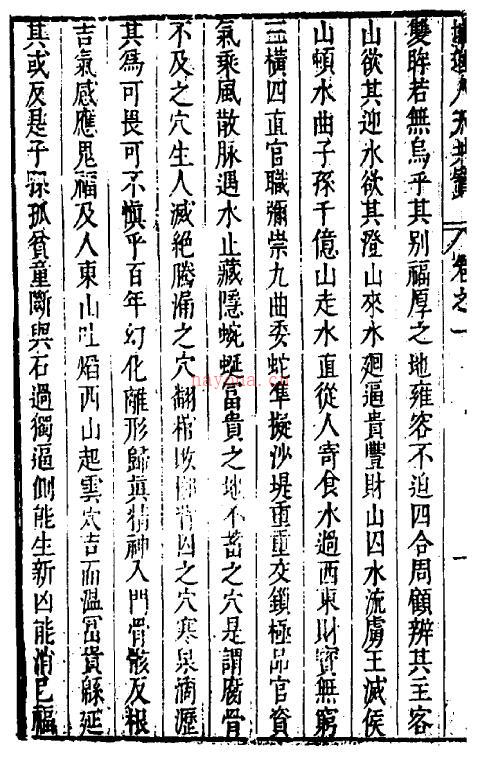 卷之一
雙眸若無烏乎其别福厚之地雍容不迫四合周顧辨其主客
山欲其迎水欲其澄山來水廻逼貴豐財山囚水流虜王滅侯
山頓水曲子孫千億山走水直從人寄食水過西東財寳無窮
三橫四直官職彌崇九曲委蛇凖擬沙堤重重交鎖極品官資
氣乘風散脉遇水止藏隱蜿蜒富貴之地不畜之穴是謂腐骨
不及之穴生人滅絶騰漏之穴翻棺敗槨背囚之穴寒泉滴瀝
其爲可畏可不愼乎百年幻化離形歸眞精神入門骨骸反根
吉氣感應鬼福及人東山吐焰西山起雲穴吉而温冨貴緜延
其或反是子孫孤貧童斷與石過獨逼側能生新凶能消已福
一
nayona.cn